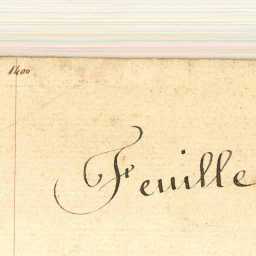 1400
Feuille